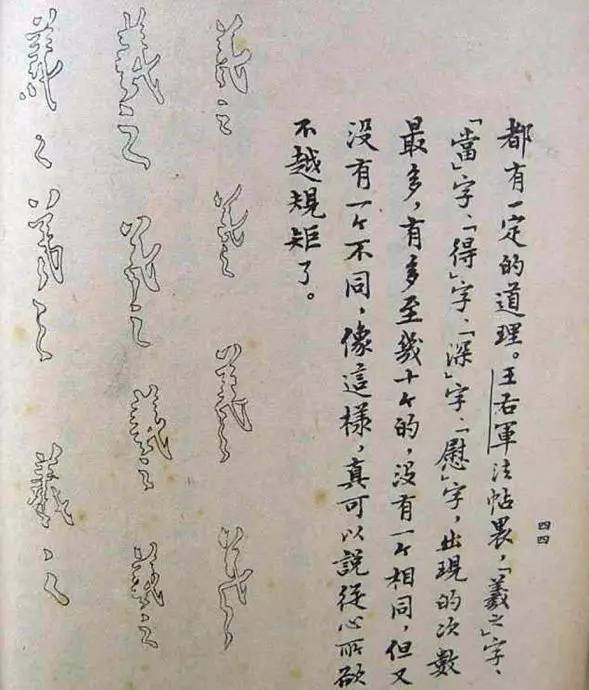 四四
都有一定的道理。王右軍法帖裏,「羲之」字、
「當」字、「得」字、「深」字、「慰」字,出現的次數
最多,有多至幾十个的,沒有一个相同,但又
沒有一个不同,像這樣,真可以說從心所欲
不越規矩了。
羲之
羲之
羲之
羲之
羲之
羲之
羲之
羲之
羲之
羲之
羲之